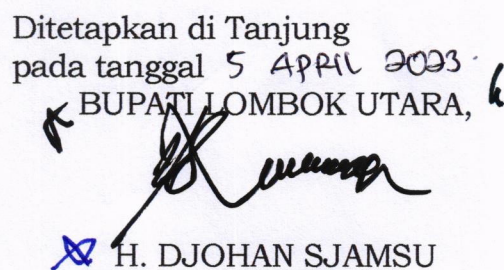 Ditetapkan di Tanjung
pada tanggal 5 APRIL 2023.
BUPATI LOMBOK UTARA,
H. DJOHAN SJAMSU